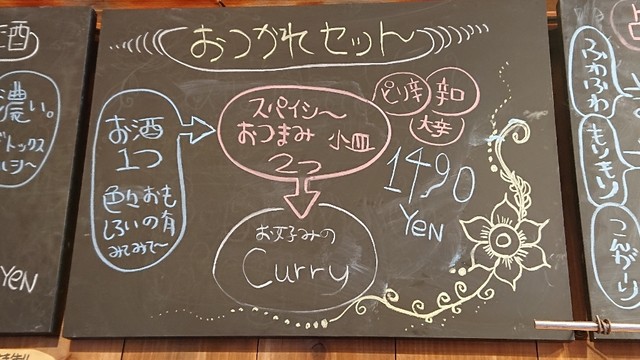 おつかれセット
お酒
1つ
色々おも
しろいの有
みてみて〜
スパイシ〜
おつまみ 小皿
2つ
ピリ辛
辛口
大辛
1490
YEN
お好みの
Curry
酒
濃い。
YEN
ふわふわ
もりもり
こんがり